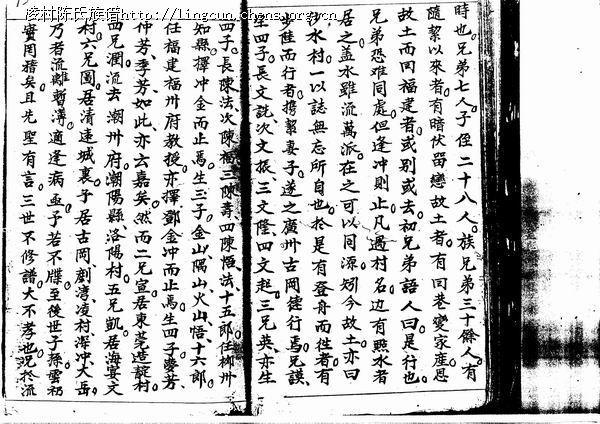 凌村陈氏族谱 http://lingcun.chens.org.cn
時也兄弟七人子侄二十八人族兄弟三十餘人有
隨挈以來者有暗伏留戀故土者有因巷變家產恩
故土而回福建者或別或去初兄弟語人曰是行也
兄弟恐难同處但逢冲則止凡過村名边有㸃水者
居之盖水雖流萬派在之可以同源矧今故土亦曰
沙水村一以誌無忘所自也於是有登舟而往者有
步陸而行者携挈妻子遂之廣州古岡徤行焉兄謨
生四子長文説次文振三文陞四文起三兄英亦生
四子長陳法次陳福三陳壽四陳恆法十五郎任柳州
知縣擇冲金而止焉生三子金山隅山火山悟十六郎
任福建福州府教授亦擇鄧金冲而止焉生四子麥芳
仲芳季芳如此亦云嘉矣然而二兄宣居東莞造靛村
四兄潤流去潮州府潮陽縣洛陽村五兄凱居海宴文
村六兄圖居清遠城裏子居古岡劏湾凌村深冲大岳
乃者流離暫濘適逢病亟予若不牒至後世子孫雲礽
實罔稽矣且先聖有言三世不修譜大不孝也况於流